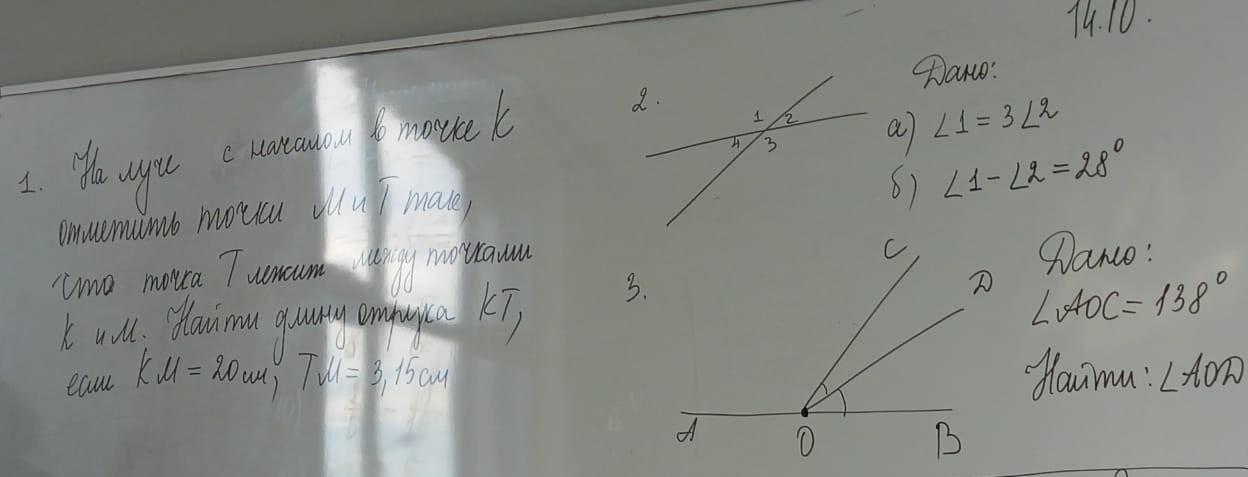 14.10.
1. На луче с началом в точке K
отметить точки M и T так,
что точка T лежит между точками
K и M. Найти длину отрезка KT,
если KM = 20 см, TM = 3,15 см
2.
1
2
3
4
Дано:
а) ∠1 = 3∠2
б) ∠1 - ∠2 = 28°
3.
C
D
A
O
B
Дано:
∠AOC = 138°
Найти: ∠AOD